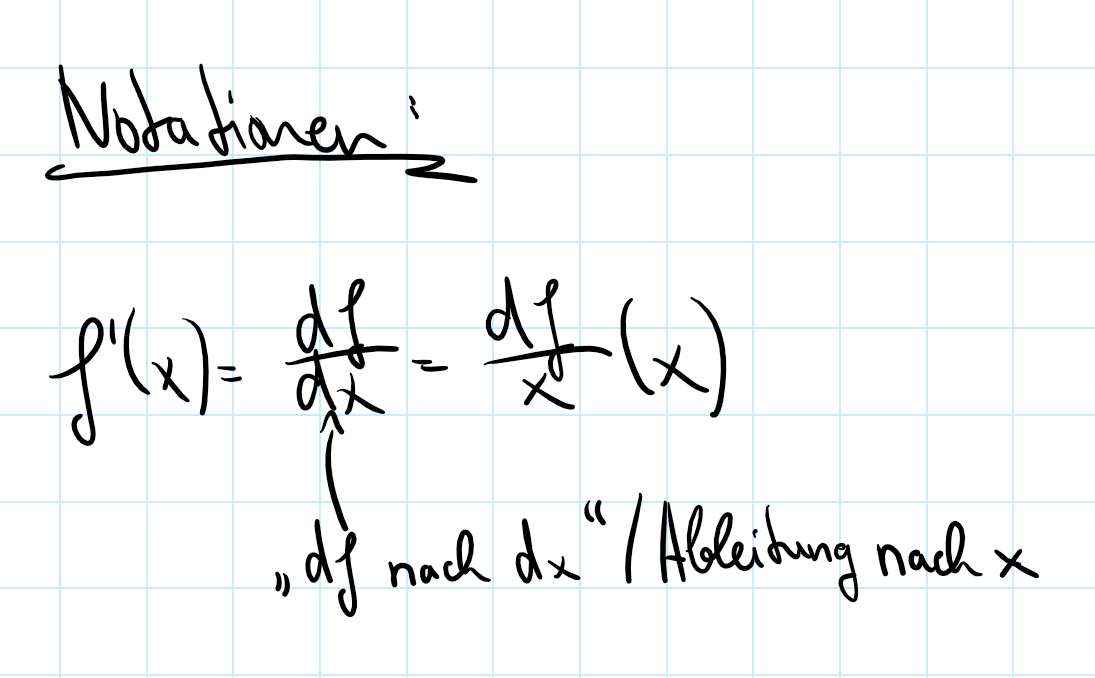 Notationen:
f'(x) = df/dx = df/x (x)
„df nach dx“ / Ableitung nach x